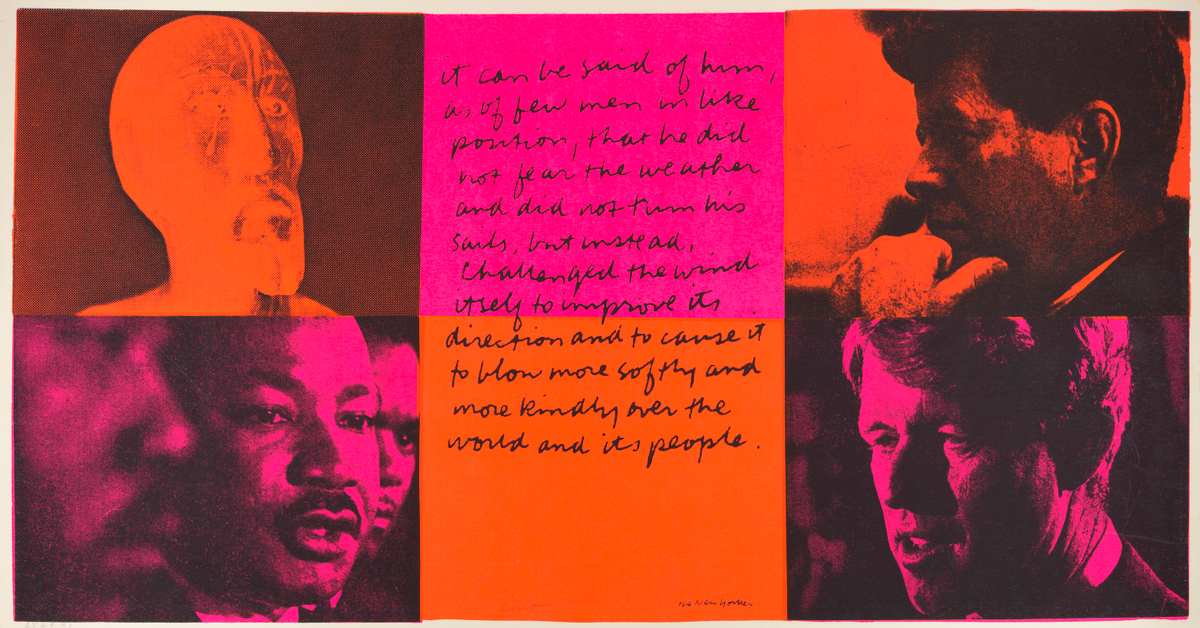 it can be said of him,
as, of few men in like
position, that he did
not fear the weather
and did not turn his
sails, but instead,
challenged the wind
itself to improve its
direction and to cause it
to blow more softly and
more kindly over the
world and its people.
the New Yorker